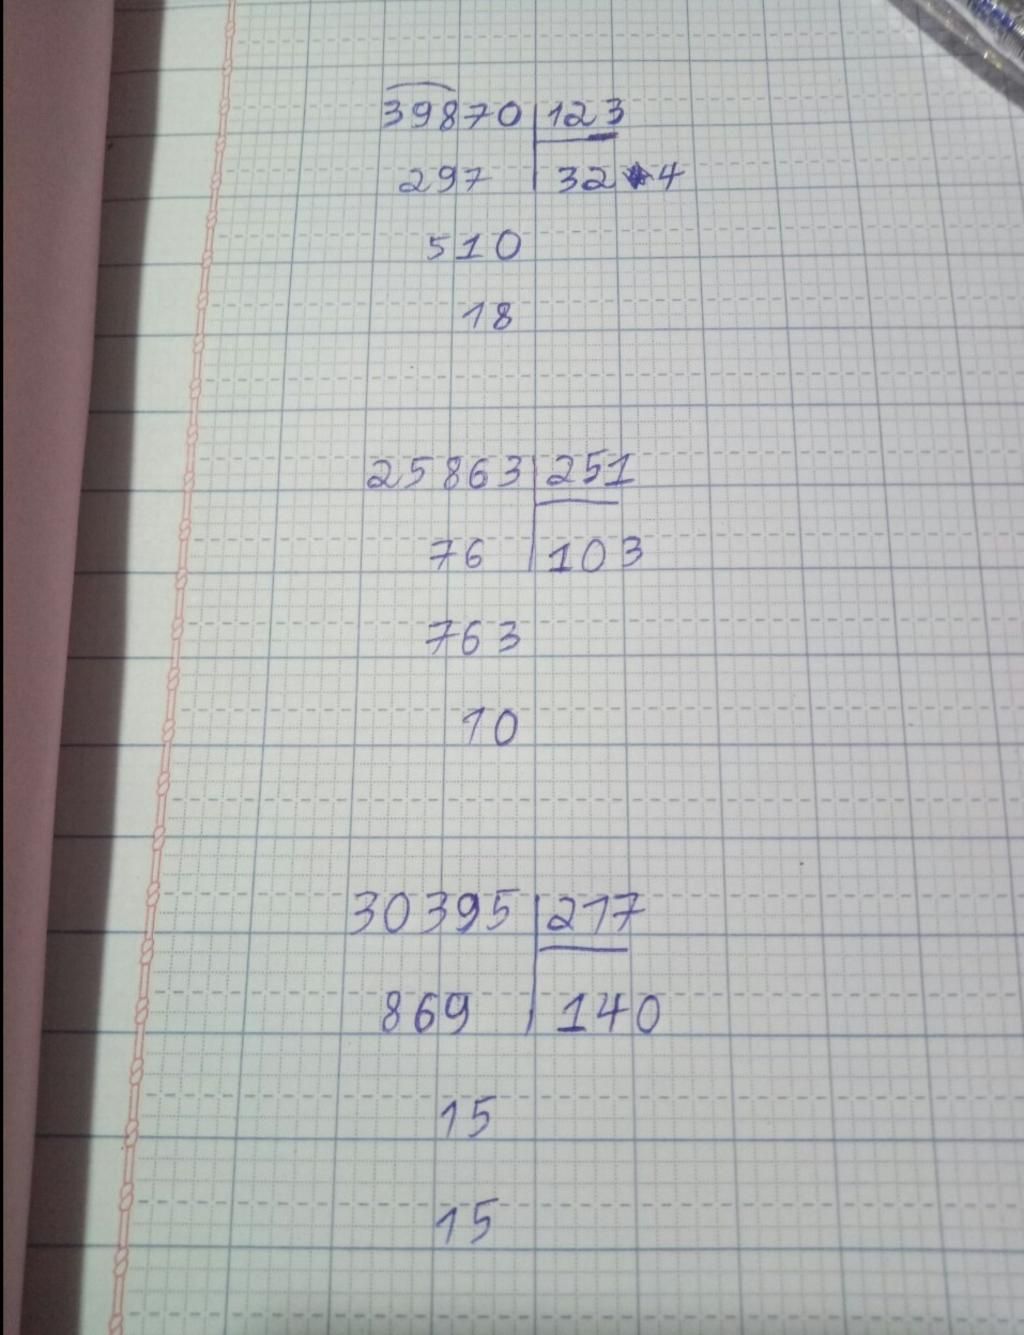 39870 123
297 324
510
18
25863 251
76 103
763
10
30395 217
869 140
15
15